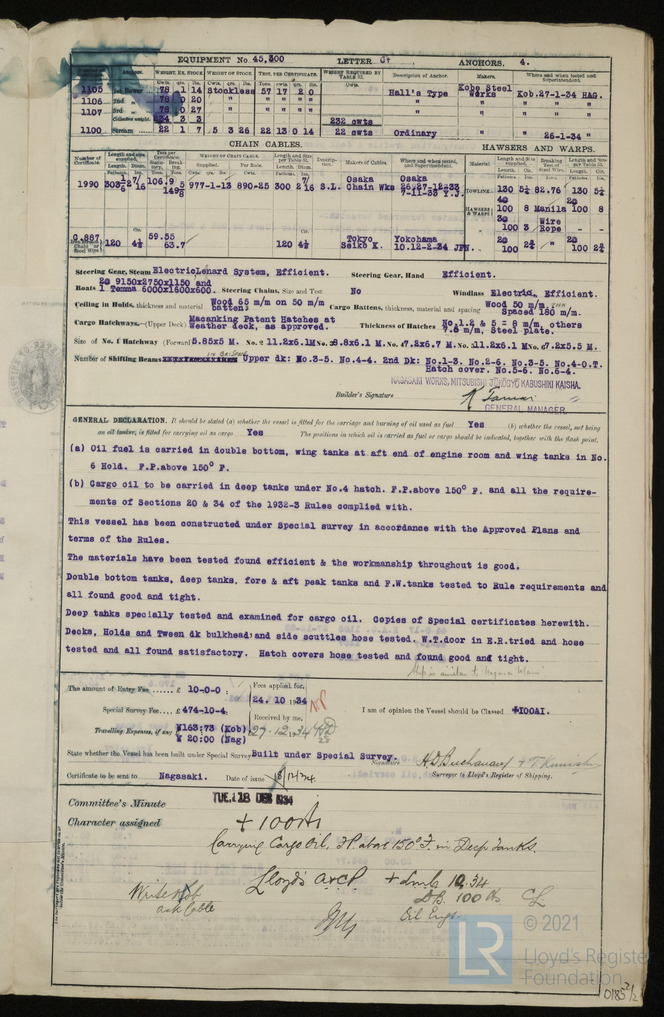 EQUIPMENT No. 45,300 LETTER C† ANCHORS, 4.
Anchors. WEIGHT, EX. STOCK WEIGHT OF STOCK. TEST, PER CERTIFICATE. WEIGHT REQUIRED BY TABLE 22. Description of Anchor. Makers. Where and when tested and Superintendent.
1105 1st Bower 78 1 14 Stockless 57 17 2 0 Cwts. Hall's Type Kobe Steel Works Kob.27-1-34 HAG.
1106 2nd " 78 0 20 " " " " "
1107 3rd " 78 0 27 " " " " "
Collective weight. 234 3 3 232 cwts
1100 Stream 22 1 7 5 3 26 22 13 0 14 22 cwts Ordinary " 26-1-34 "
CHAIN CABLES. HAWSERS AND WARPS.
1990 106.9 149 977-1-13 890-25 300 S.L. Osaka Chain Wks Osaka 26,27-12-33 7-11-33 Y.J. TOWLINE 130 5¼ 82.76 130 5¼
HAWSERS & WARPS 100 8 Manila 100 8
100 3 Wire Rope
C.887 120 4¼ 59.55 63.7 120 4¼ Tokyo Seiko K. Yokohama 10.12-2-34 JPN. 100 2¾ " 100 2¾
Steering Gear, Steam Electric Lenard System, Efficient. Steering Gear, Hand Efficient.
Boats 2@ 9150x2750x1150 and 1 Temma 6000x1600x600. Steering Chains, Size and Test No Windlass Electric, Efficient.
Ceiling in Holds, thickness and material Wood 65 m/m on 50 m/m batten; Cargo Battens, thickness, material and spacing Wood 50 m/m. Spaced 180 m/m.
Cargo Hatchways.—(Upper Deck) Macanking Patent Hatches at Weather deck, as approved. Thickness of Hatches No.1.2 & 5 = 8 m/m, others 7.5 m/m, Steel plate.
Size of No. 1 Hatchway (Forward) 5.85x5 M. No. 2 11.2x6.1M No. 3 8.8x6.1 M. No. 4 7.2x6.7 M. No. 5 11.2x6.1 M No. 6 7.2x5.5 M.
Number of Shifting Beams Upper dk: No.3-5. No.4-4. 2nd Dk: No.1-3. No.2-6. No.3-5. No.4-O.T.
Hatch cover. No.5-6. No.6-4.
NAGASAKI WORKS, MITSUBISHI JUKOGYO KABUSHIKI KAISHA.
Builder's Signature
GENERAL MANAGER.
GENERAL DECLARATION. It should be stated (a) whether the vessel is fitted for the carriage and burning of oil used as fuel Yes (b) whether the vessel, not being
an oil tanker, is fitted for carrying oil as cargo Yes The positions in which oil is carried as fuel or cargo should be indicated, together with the flash point.
(a) Oil fuel is carried in double bottom, wing tanks at aft end of engine room and wing tanks in No.
6 Hold. F.P.above 150° F.
(b) Cargo oil to be carried in deep tanks under No.4 hatch. F.P.above 150° F. and all the require-
ments of Sections 20 & 34 of the 1932-3 Rules complied with.
This vessel has been constructed under Special survey in accordance with the Approved Plans and
terms of the Rules.
The materials have been tested found efficient & the workmanship throughout is good.
Double bottom tanks, deep tanks, fore & aft peak tanks and F.W.tanks tested to Rule requirements and
all found good and tight.
Deep tanks specially tested and examined for cargo oil. Copies of Special certificates herewith.
Decks, Holds and Tween dk bulkhead and side scuttles hose tested. W.T.door in E.R.tried and hose
tested and all found satisfactory. Hatch covers hose tested and found good and tight.
The amount of Entry Fee ...... £ 10-0-0 : Fees applied for,
24. 10. 1934
Special Survey Fee .... £ 474-10-4. Received by me, I am of opinion the Vessel should be Classed +100A1.
Travelling Expenses, if any ¥163:73 (Kob) 27.12.1934
¥ 20:00 (Nag)
State whether the Vessel has been built under Special Survey Built under Special Survey. Signature H.D. Buchanan
Certificate to be sent to Nagasaki. Date of issue 18/12/34. Surveyor to Lloyd's Register of Shipping.
Committee's Minute TUE. 18 DEC 1934
Character assigned +100A1
Carrying Cargo Oil, F.P. above 150°F. in Deep Tanks.
Lloyd's A&CP. + LMC 12.34
Write Kob
ask Cable
D.B. 100 lb
Oil Engs.
CL
© 2021
LR
Lloyd's Register
Foundation
0185 2/2